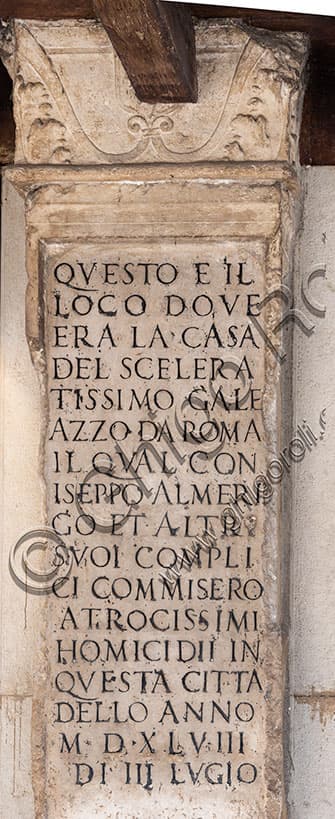 QVESTO E IL
LOCO DOVE
ERA LA CASA
DEL SCELERA
TISSIMO GALE
AZZO·DA ROMA
IL QVAL CON
ISEPPO ALMERI
GO ET ALTRI
SVOI COMPLI
CI COMMISERO
ATROCISSIMI
HOMICIDII IN
QVESTA CITTA
DELLO ANNO
M· D· X LV·III
DI III LVGIO
©Ghigo Roli
www.ghigoroli.com